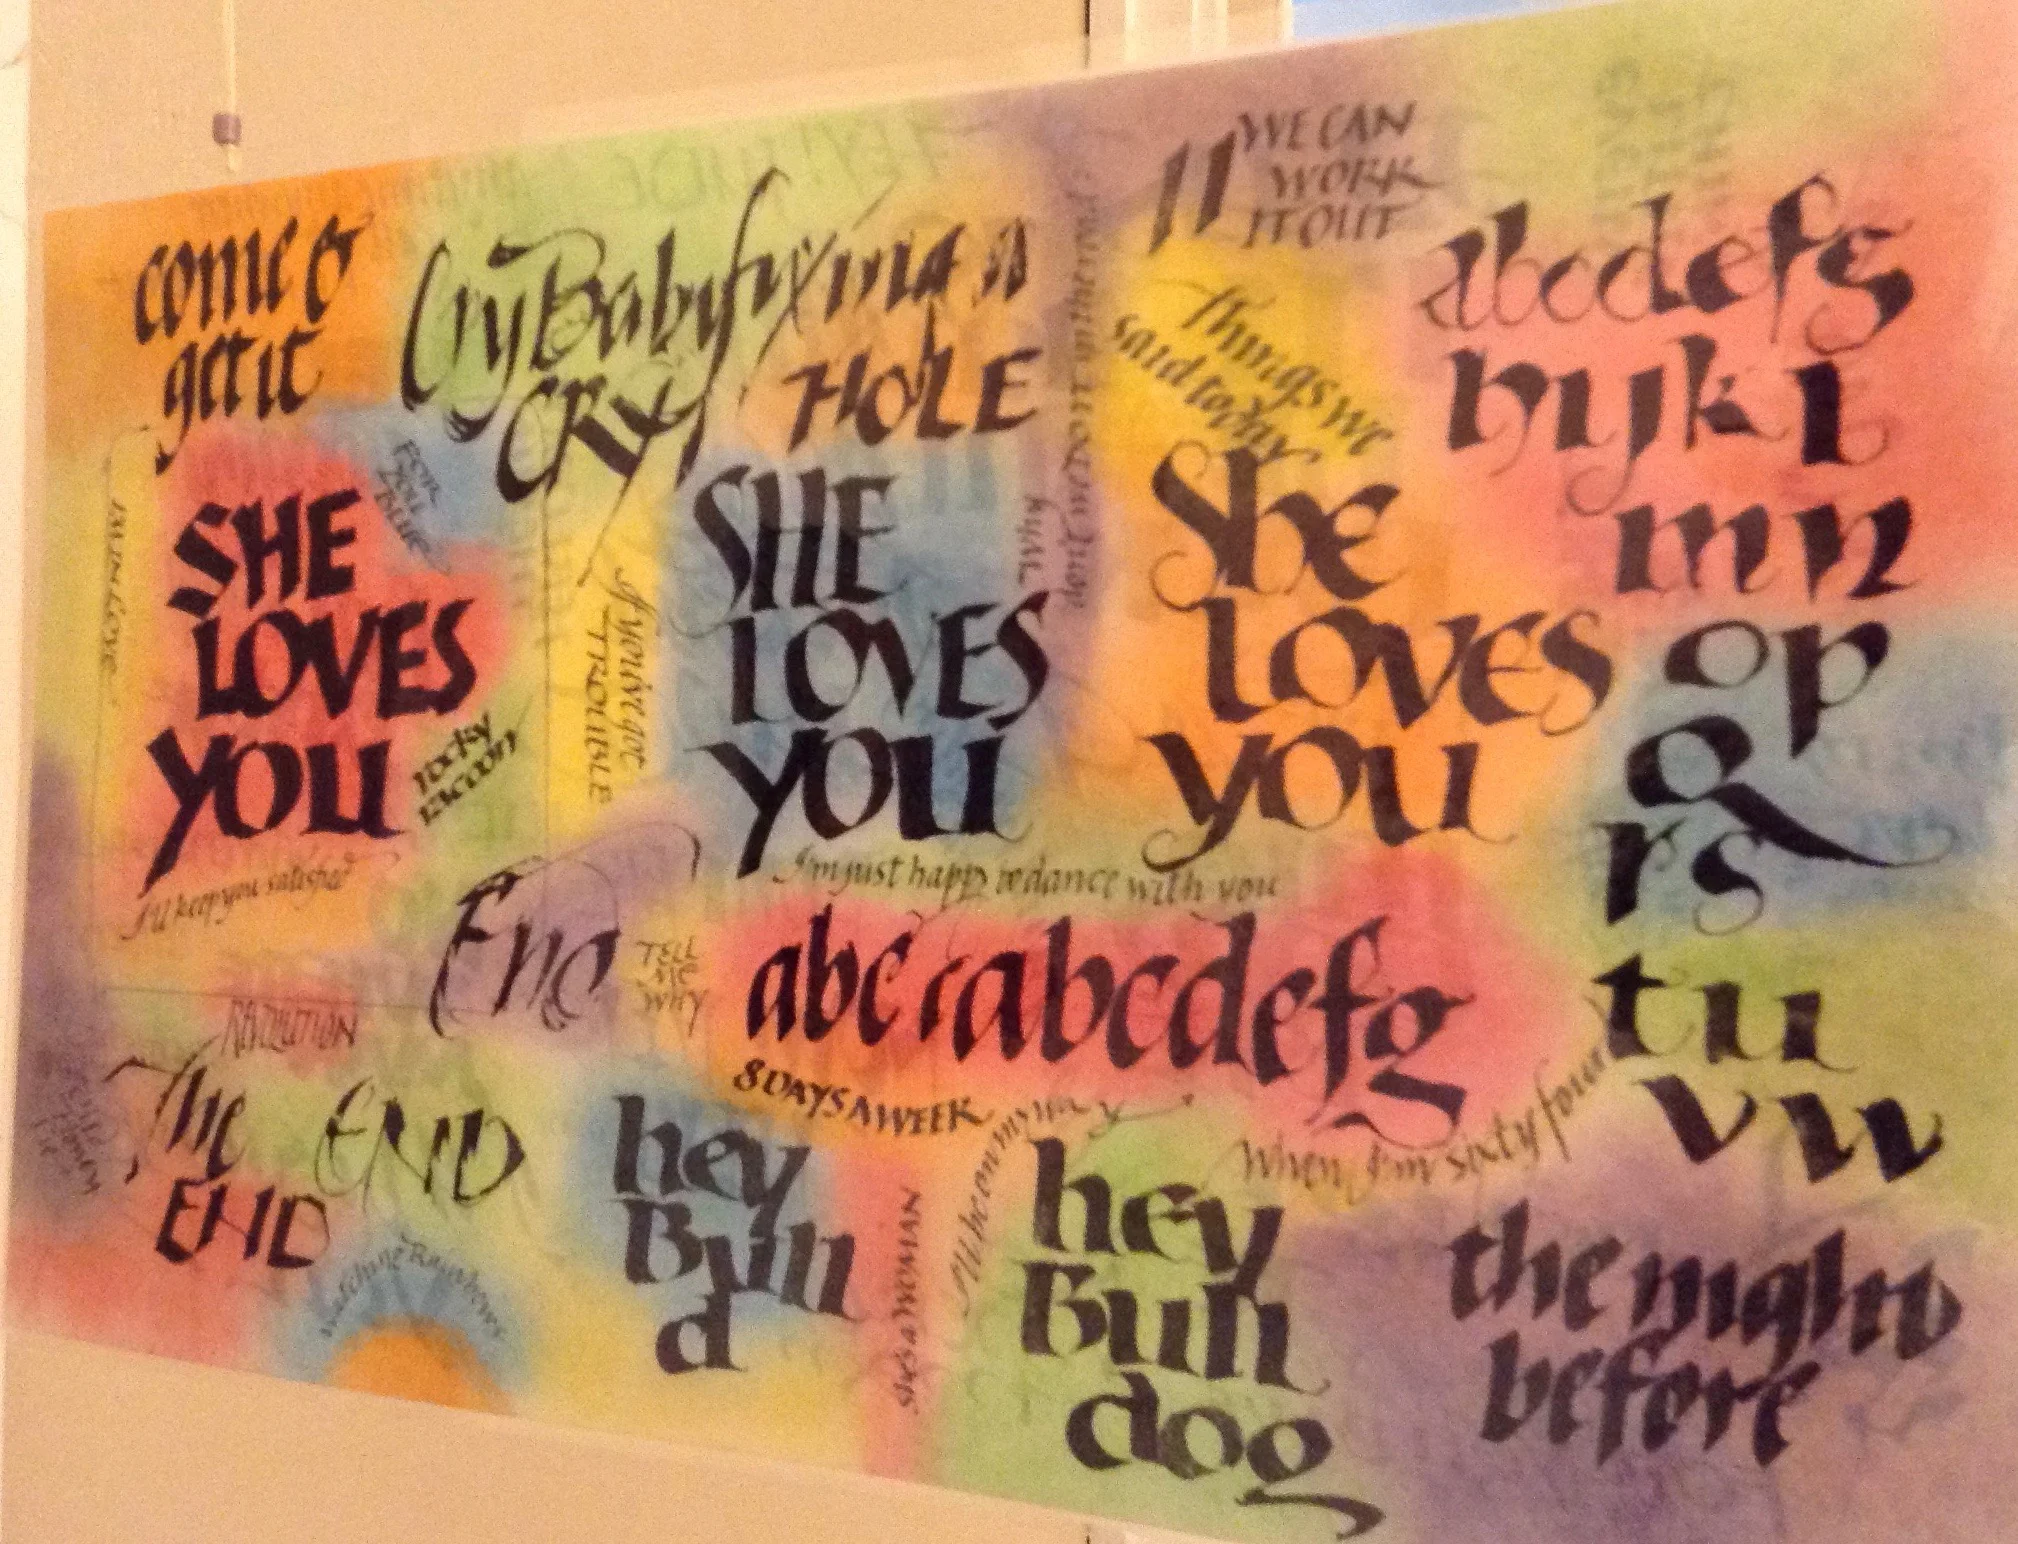 come &
get it
Cry Baby
CRY
fixing a
HOLE
WE CAN
WORK
IT OUT
Things we
said today
abcdefg
hijkl
mn
op
Q
rs
tu
vw
FOR
YOU
BLUE
SHE
LOVES
YOU
rocky
racoon
I'll keep you satisfied
If you've got
TROUBLE
SHE
LOVES
YOU
She
LOVES
YOU
I'm just happy to dance with you
End
TELL
ME
WHY
abc abcdefg
8 DAYS A WEEK
REVOLUTION
The
END
END
Watching Rainbows
hey
Bull
d
SHE'S A WOMAN
hey
Bull
dog
When I'm sixty four
the night
before